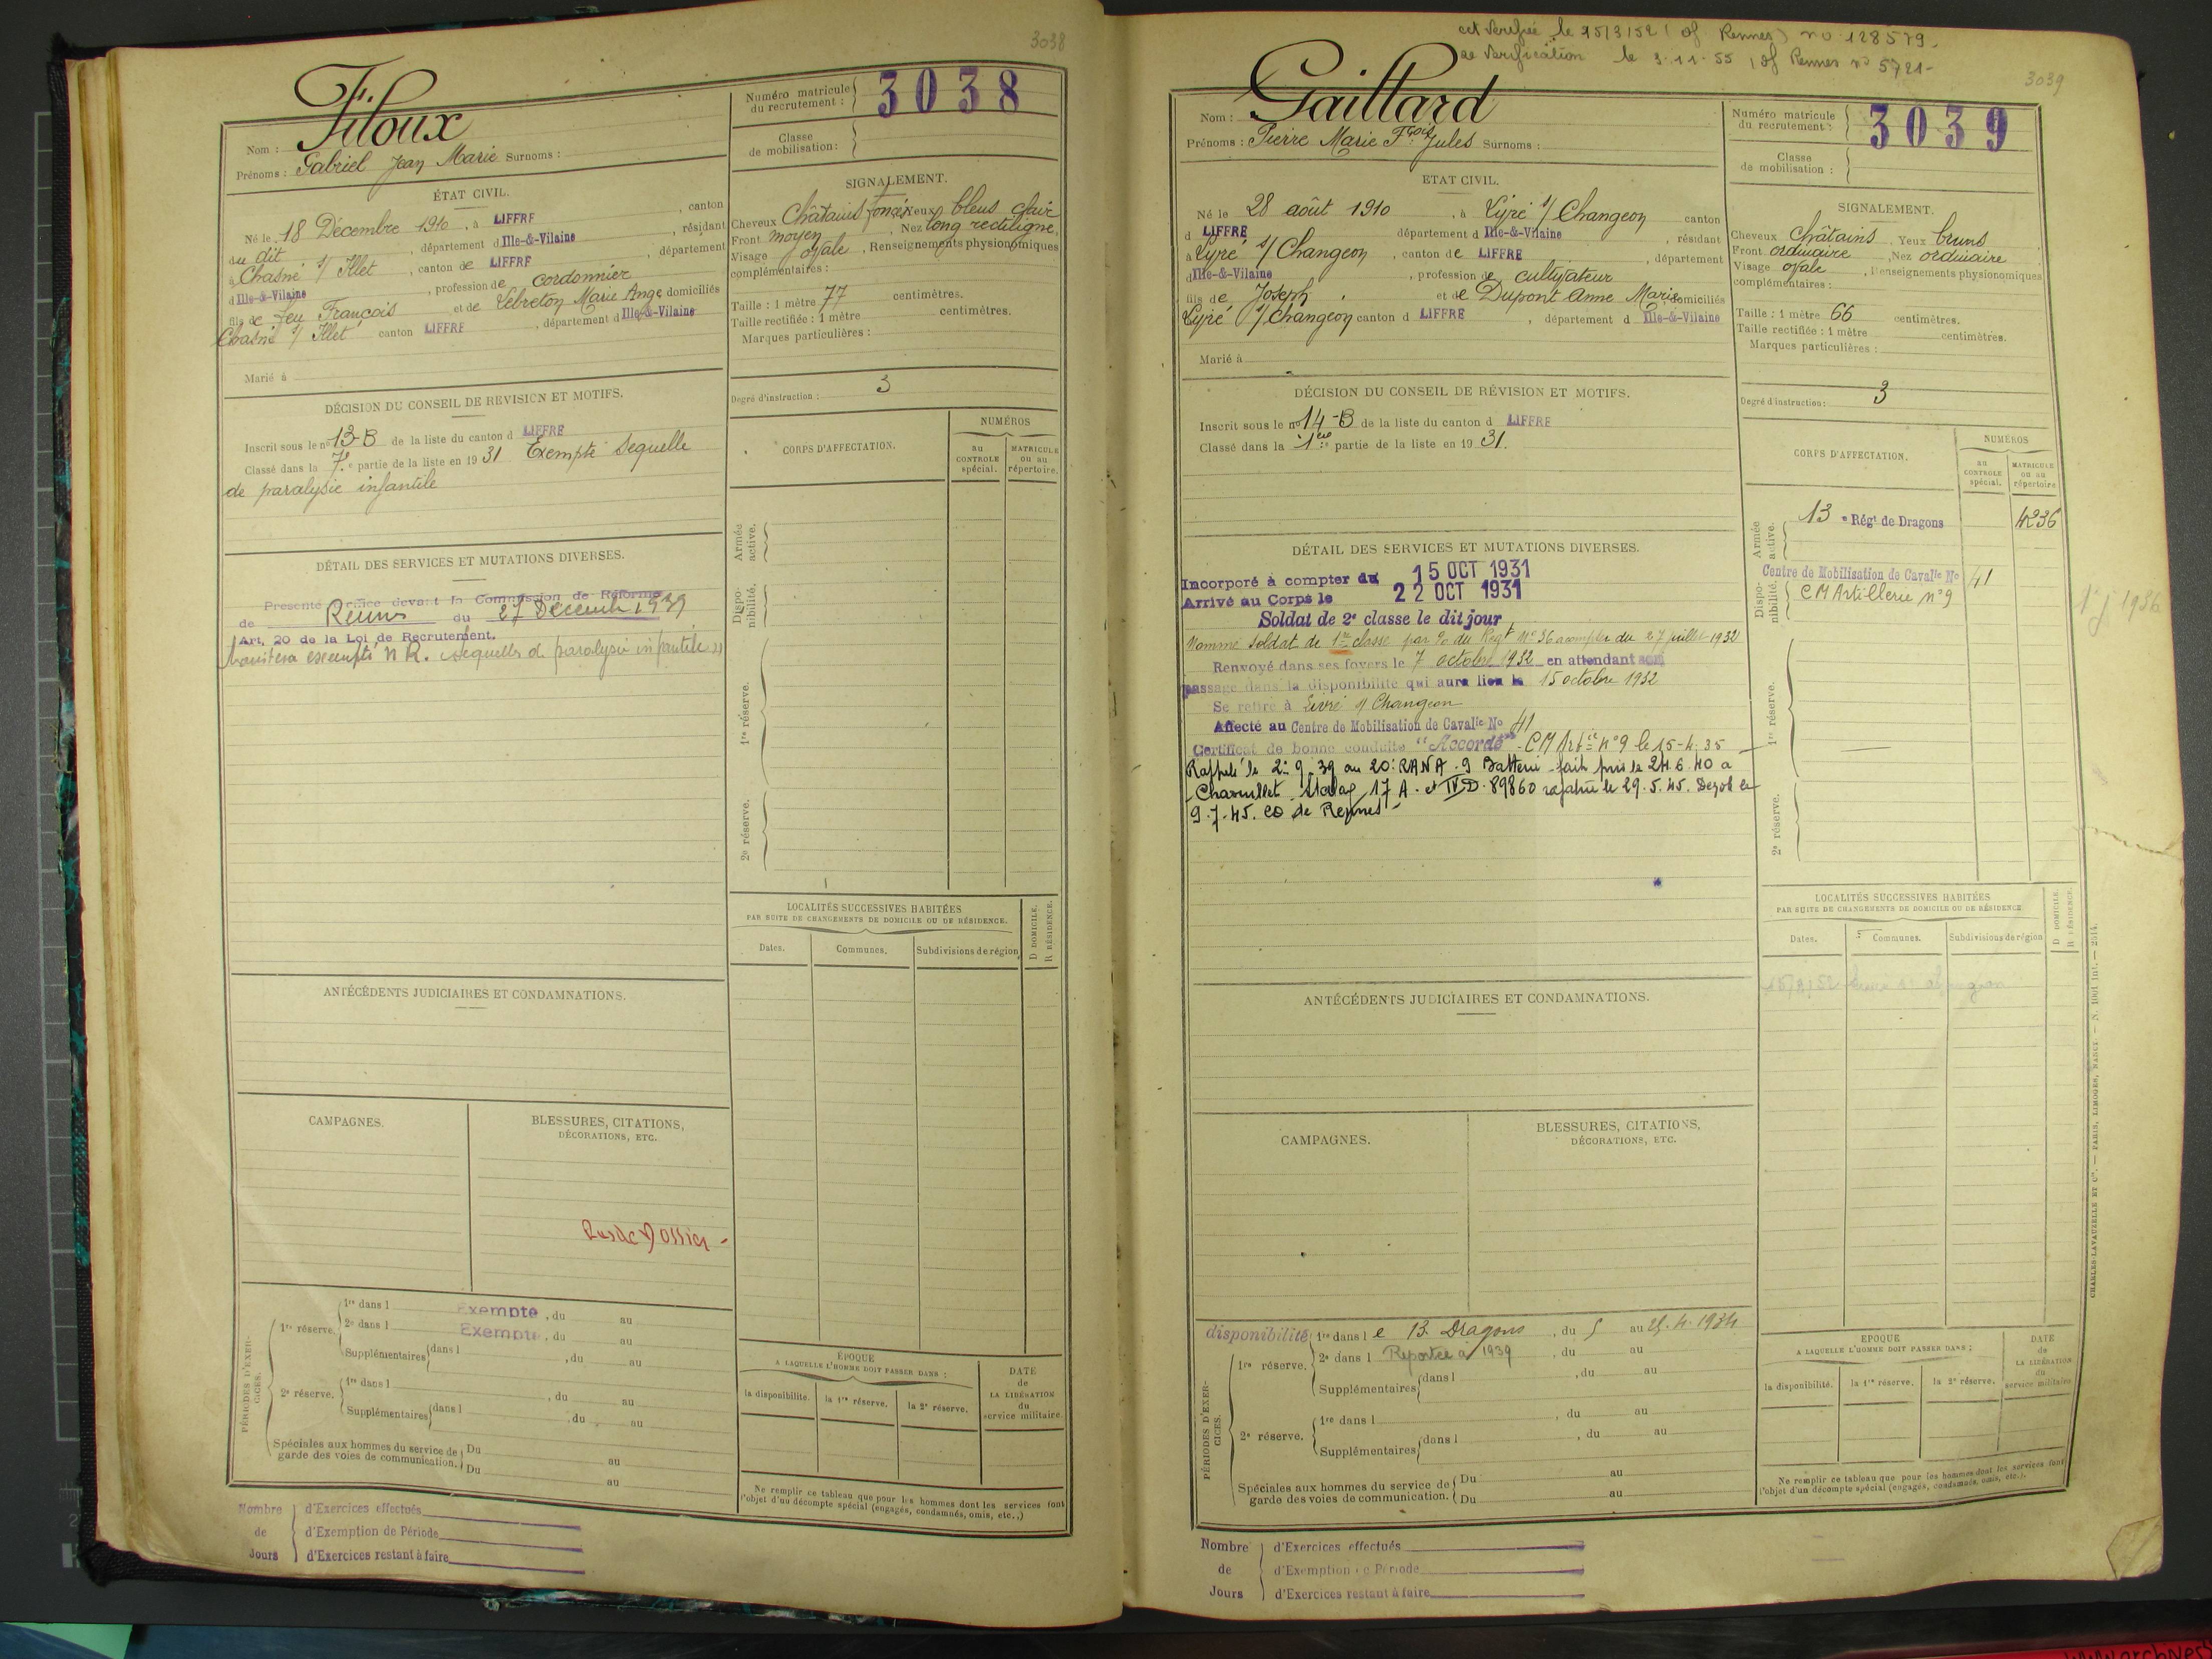 3038
Filoux
Nom :
Prénoms : Gabriel Jean Marie Surnoms :
Numéro matricule du recrutement : 3038
Classe de mobilisation :
ÉTAT CIVIL.
Né le 18 Décembre 1910, à LIFFRÉ, canton
du dit, département d Ille-&-Vilaine, résidant
à Chasné s/ Illet, canton de LIFFRÉ, département
d Ille-&-Vilaine, profession de cordonnier
fils de feu François et de Lebreton Marie Ange domiciliés
Chasné s/ Illet canton LIFFRÉ, département d Ille-&-Vilaine
Marié à
SIGNALEMENT.
Cheveux Châtains foncés Yeux bleus clair
Front moyen, Nez long rectiligne,
Visage ovale, Renseignements physionomiques
complémentaires :
Taille : 1 mètre 77 centimètres.
Taille rectifiée : 1 mètre centimètres.
Marques particulières :
Degré d'instruction : 3
DÉCISION DU CONSEIL DE REVISION ET MOTIFS.
Inscrit sous le no 13-B de la liste du canton d LIFFRÉ
Classé dans la 7e partie de la liste en 1931 Exempté Sequelle
de paralysie infantile
CORPS D'AFFECTATION.
NUMÉROS
au CONTROLE spécial.
MATRICULE ou au répertoire.
Armée active.
Disponibilité.
1re réserve.
2e réserve.
DÉTAIL DES SERVICES ET MUTATIONS DIVERSES.
Présenté d'office devant la Commission de Réforme
de Rennes du 27 Décembre 1939
Art. 20 de la Loi de Recrutement.
exempté N R. sequelles de paralysie infantile
LOCALITÉS SUCCESSIVES HABITÉES
PAR SUITE DE CHANGEMENTS DE DOMICILE OU DE RÉSIDENCE.
Dates.
Communes.
Subdivisions de région.
D DOMICILE.
R RÉSIDENCE.
ANTÉCÉDENTS JUDICIAIRES ET CONDAMNATIONS.
CAMPAGNES.
BLESSURES, CITATIONS,
DÉCORATIONS, ETC.
Pas de Dossier -
PÉRIODES D'EXERCICES.
1re réserve.
1re dans l Exempté, du au
2e dans l Exempté, du au
Supplémentaires dans l , du au
2e réserve.
1re dans l , du au
Supplémentaires dans l , du au
Spéciales aux hommes du service de garde des voies de communication.
Du au
Du au
ÉPOQUE
A LAQUELLE L'HOMME DOIT PASSER DANS :
la disponibilité.
la 1re réserve.
la 2e réserve.
DATE de LA LIBÉRATION du service militaire.
Ne remplir ce tableau que pour les hommes dont les services font
l'objet d'un décompte spécial (engagés, condamnés, omis, etc..)
Nombre de Jours
d'Exercices effectués
d'Exemption de Période
d'Exercices restant à faire
Vérifiée le 15/3/52 (of Rennes) no 128579-
2e Vérification le 3.11.55 (of Rennes no 5721-
3039
Nom : Gaillard
Prénoms : Pierre Marie Fçois Jules Surnoms :
Numéro matricule du recrutement : 3039
Classe de mobilisation :
ÉTAT CIVIL.
Né le 28 août 1910, à Livré s/ Changeon canton
d LIFFRÉ département d Ille-&-Vilaine, résidant
à Livré s/ Changeon, canton de LIFFRÉ, département
d Ille-&-Vilaine, profession de cultivateur
fils de Joseph, et de Dupont Anne Marie domiciliés
Livré s/ Changeon canton d LIFFRÉ, département d Ille-&-Vilaine
Marié à
SIGNALEMENT.
Cheveux châtains, Yeux bruns
Front ordinaire, Nez ordinaire
Visage ovale, Renseignements physionomiques
complémentaires :
Taille : 1 mètre 66 centimètres.
Taille rectifiée : 1 mètre centimètres.
Marques particulières :
Degré d'instruction : 3
DÉCISION DU CONSEIL DE RÉVISION ET MOTIFS.
Inscrit sous le no 14-B de la liste du canton d LIFFRÉ
Classé dans la 1ère partie de la liste en 1931.
CORPS D'AFFECTATION.
NUMÉROS
au CONTROLE spécial.
MATRICULE ou au répertoire
Armée active.
13 e Régt de Dragons 4236
Disponibilité.
Centre de Mobilisation de Cavalie No 41
CM Artillerie n°9
1936
1re réserve.
2e réserve.
DÉTAIL DES SERVICES ET MUTATIONS DIVERSES.
Incorporé à compter du 15 OCT 1931
Arrivé au Corps le 22 OCT 1931
Soldat de 2e classe le dit jour
Nommé soldat de 1re classe par O. du Régt No 36 à compter du 27 juillet 1932
Renvoyé dans ses foyers le 7 octobre 1932 en attendant son
passage dans la disponibilité qui aura lieu le 15 octobre 1932
Se retire à Livré s/ Changeon
Affecté au Centre de Mobilisation de Cavalie No 41
Certificat de bonne conduite "Accordé" - CM Artie n°9 le 15-4-35
Rappelé le 2.9.39 au 20e RANA. 9 Batterie fait pris le 24.6.40 a
Charmillet Stalag 17 A. et IV D. 89860 rapatrié le 29.5.45. Degob le
9.7.45. CO de Rennes -
LOCALITÉS SUCCESSIVES HABITÉES
PAR SUITE DE CHANGEMENTS DE DOMICILE OU DE RÉSIDENCE
Dates.
Communes.
Subdivisions de région
D DOMICILE.
R RÉSIDENCE.
ANTÉCÉDENTS JUDICIAIRES ET CONDAMNATIONS.
CAMPAGNES.
BLESSURES, CITATIONS,
DÉCORATIONS, ETC.
PÉRIODES D'EXERCICES.
disponibilité 1re dans l e 13. Dragons, du 5 au 25.4.1934
1re réserve.
2e dans l Reportée à 1939, du au
Supplémentaires dans l , du au
2e réserve.
1re dans l , du au
Supplémentaires dans l , du au
Spéciales aux hommes du service de garde des voies de communication.
Du au
Du au
EPOQUE
A LAQUELLE L'HOMME DOIT PASSER DANS :
la disponibilité.
la 1re réserve.
la 2e réserve.
DATE de LA LIBÉRATION du service militaire
Ne remplir ce tableau que pour les hommes dont les services font
l'objet d'un décompte spécial (engagés, condamnés, omis, etc.).
Nombre de Jours
d'Exercices effectués
d'Exemption de Période
d'Exercices restant à faire
CHARLES-LAVAUZELLE ET Cie. — PARIS, LIMOGES, NANCY - N. 1001 Int. — 2514.